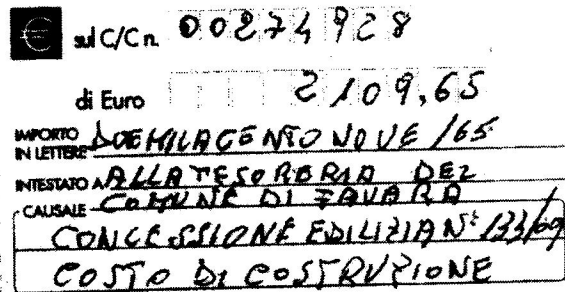 € sul C/C n. 00274928
di Euro 2109,65
IMPORTO IN LETTERE DUEMILACENTONOVE/65
INTESTATO A ALLA TESORERIA DEL
COMUNE DI FAVARA
CAUSALE
CONCESSIONE EDILIZIA N° 133/09
COSTO DI COSTRUZIONE